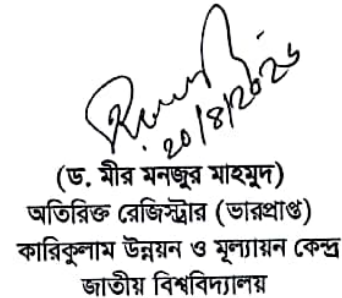 ২০/৪/২০২৬
(ড. মীর মনজুর মাহমুদ)
অতিরিক্ত রেজিস্ট্রার (ভারপ্রাপ্ত)
কারিকুলাম উন্নয়ন ও মূল্যায়ন কেন্দ্র
জাতীয় বিশ্ববিদ্যালয়